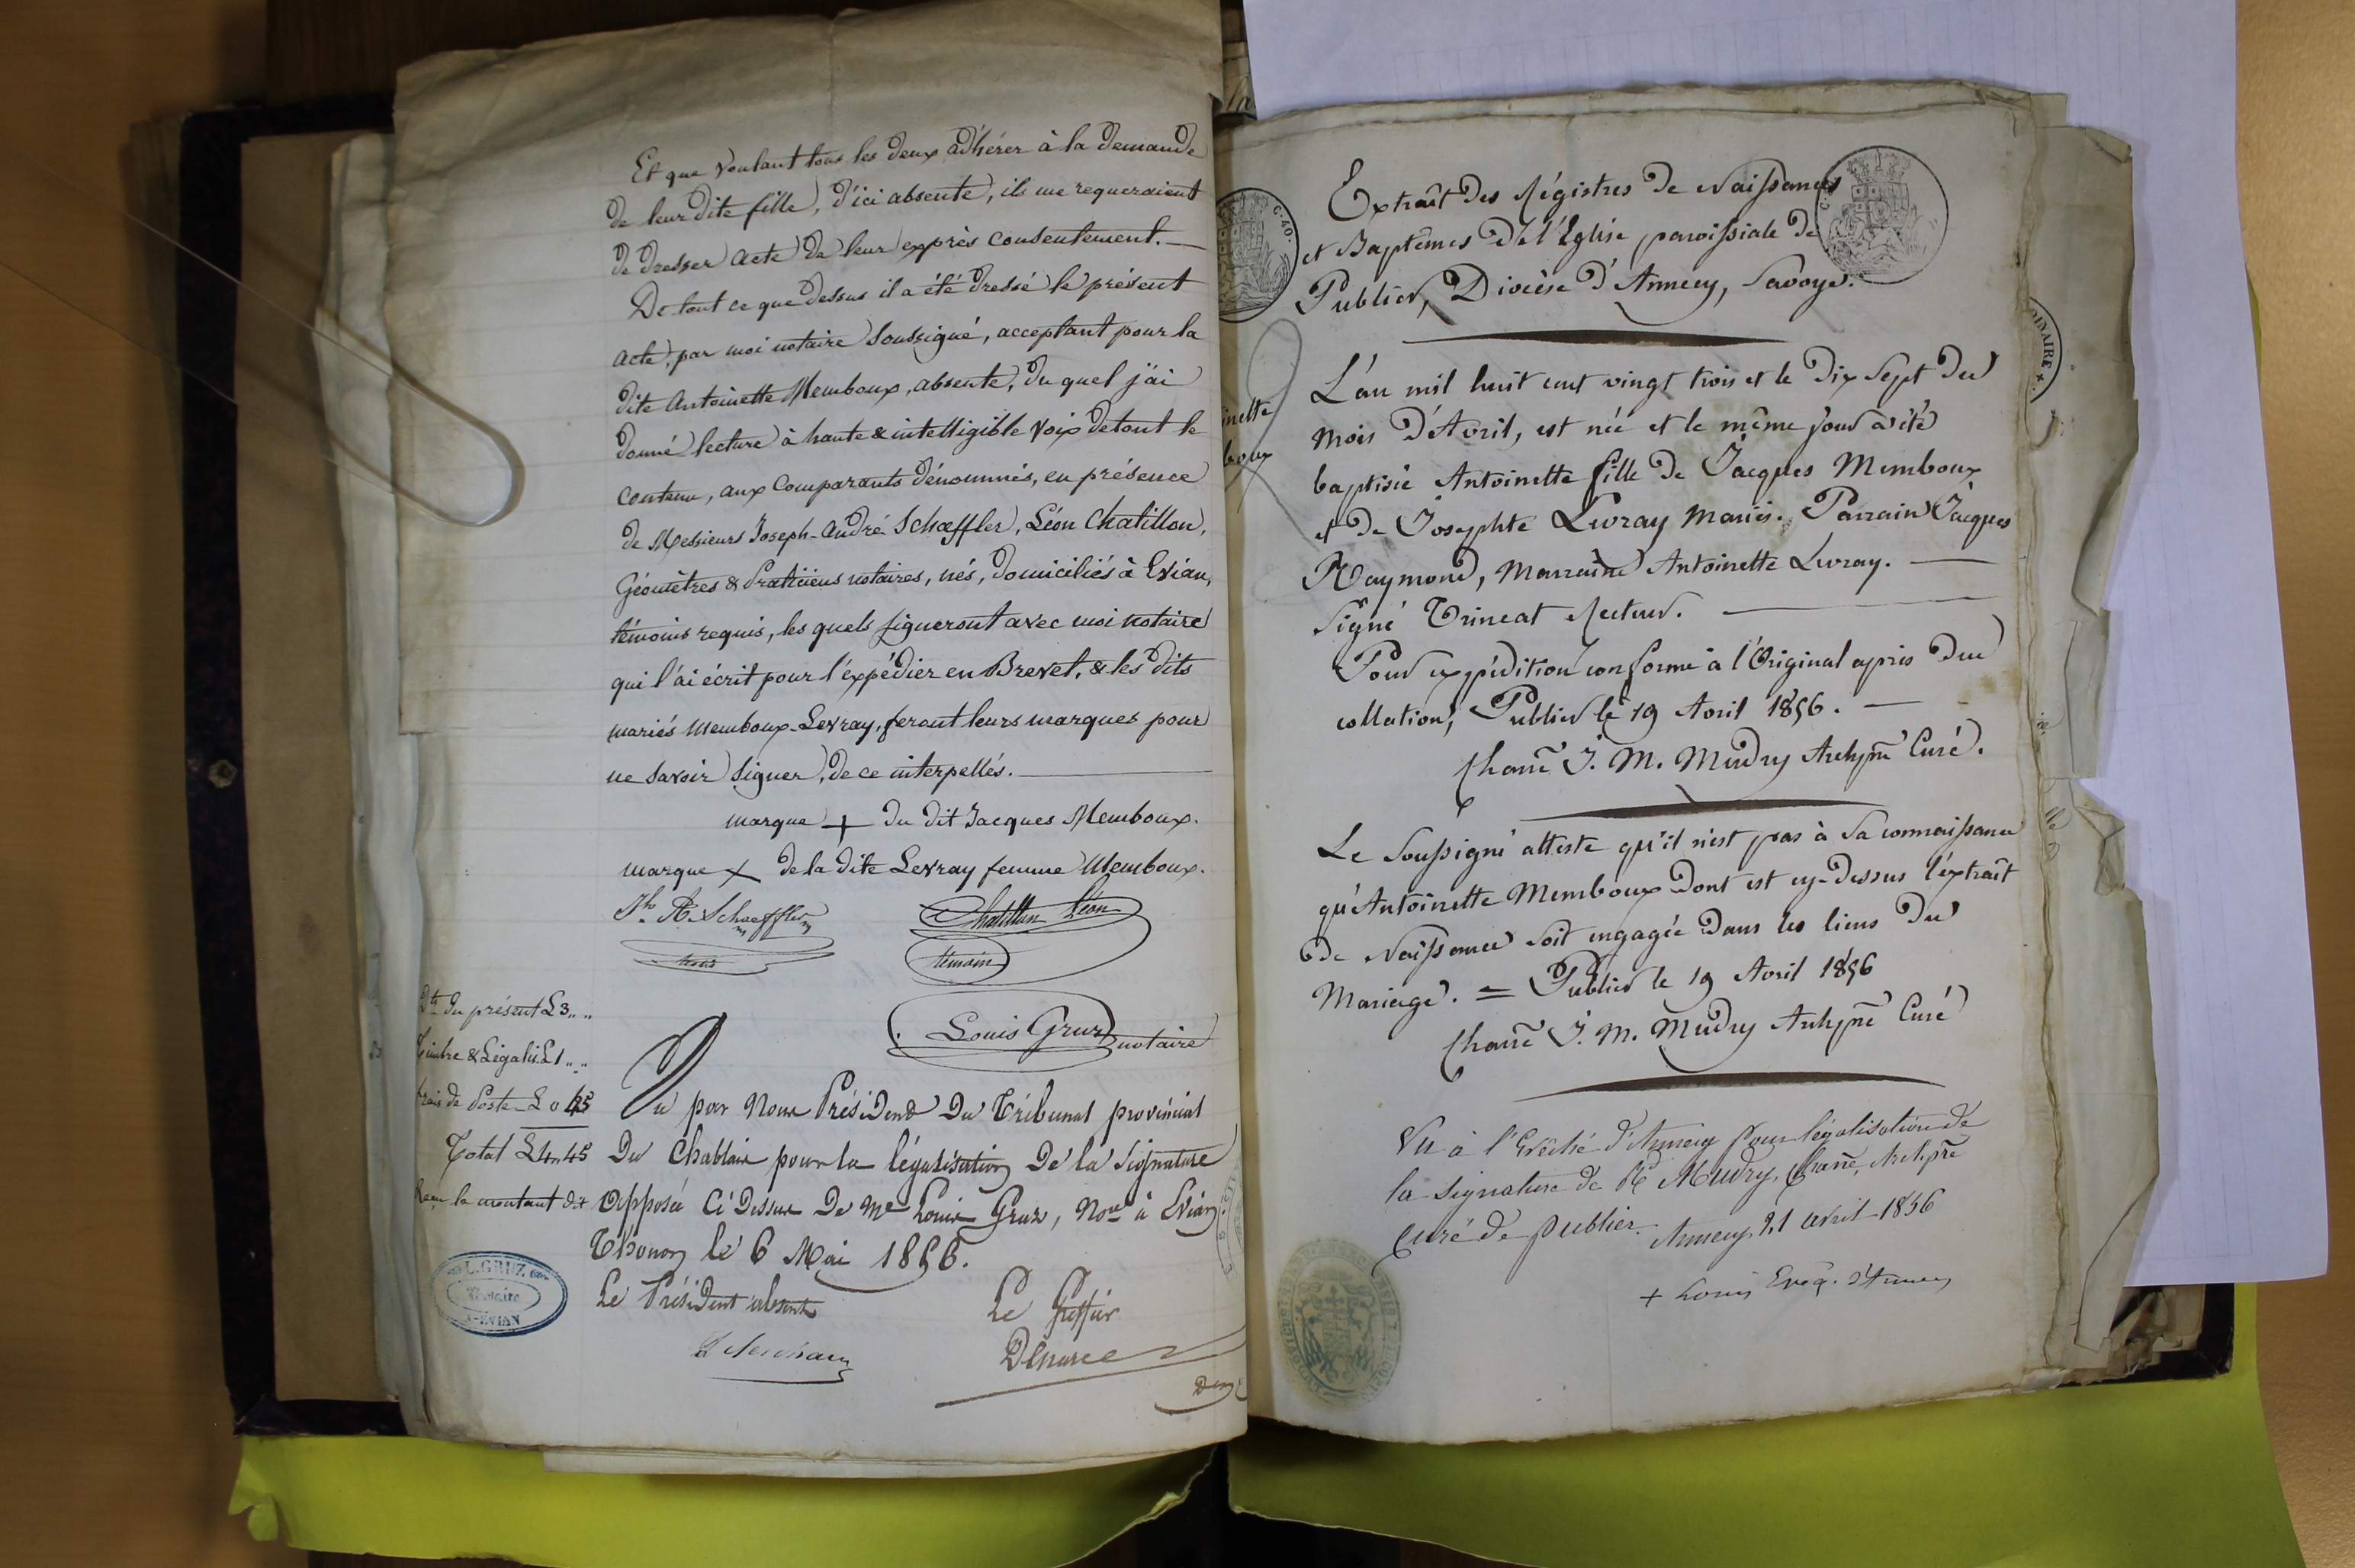 Et que voulant tous les deux adhérer à la demande
de leur dite fille, d'ici absente, ils me requeraient
de dresser acte de leur exprès consentement.
De tout ce que dessus il a été dressé le présent
acte, par moi notaire soussigné, acceptant pour la
dite Antoinette Memboux, absente, du quel j'ai
donné lecture à haute & intelligible voix de tout le
contenu, aux comparants dénommés, en présence
de Messieurs Joseph-André Schæffler, Léon Chatillon,
Géomètres & Praticiens notaires, nés, domiciliés à Evian,
témoins requis, les quels signeront avec moi notaire
qui l'ai écrit pour l'expédier en Brevet, & les dits
mariés Memboux-Levray, feront leurs marques pour
ne savoir signer, de ce interpellés.
marque + du dit Jacques Memboux.
marque + de la dite Levray femme Memboux.
Jh A. Schaeffler
Chatillon Léon
témoin
Louis Gruz notaire
Dts du présent £3 " "
Timbre & Légalis. £1 " "
frais de Poste - £0 45
Total £4 " 45
Reçu le montant dit
L. GRUZ
Notaire
A-EVIAN
Vu par Nous Président Du Tribunal provincial
Du Chablais pour la légalisation De la signature
Apposée Ci Dessus De Me Louis Gruz, Nore à Evian.
Thonon le 6 Mai 1856.
Le Président absent
Le Greffier
C.40.
inette
boux
Extrait Des Régistres De Naissances
et Baptêmes De l'Eglise paroissiale De
Publier, Diocèse d'Annecy, Savoye.
L'an mil huit cent vingt trois et le Dix Sept Du
mois D'Avril, est née et le même jour a été
baptisée Antoinette fille De Jacques Memboux
et De Josephte Levray Mariés. Parrain Jacques
Raymond, Marraine Antoinette Levray.
Signé Trincat Recteur.
Pour expédition conforme à l'Original après Due
collation, Publier le 19 Avril 1856.
Channe J. M. Mudry Archiprê Curé.
Le Soussigné atteste qu'il n'est pas à Sa connaissance
qu'Antoinette Memboux Dont est cy-Dessus l'extrait
De Naissance soit engagée Dans les liens Du
Mariage. = Publier le 19 Avril 1856
Channe J. M. Mudry Archiprê Curé
Vu à l'Evêché d'Annecy pour légalisation de
la signature de Rd Mudry, Channe, Archiprê
Curé de Publier. Annecy, 21 avril 1856
+ Louis Evêq. d'Annecy